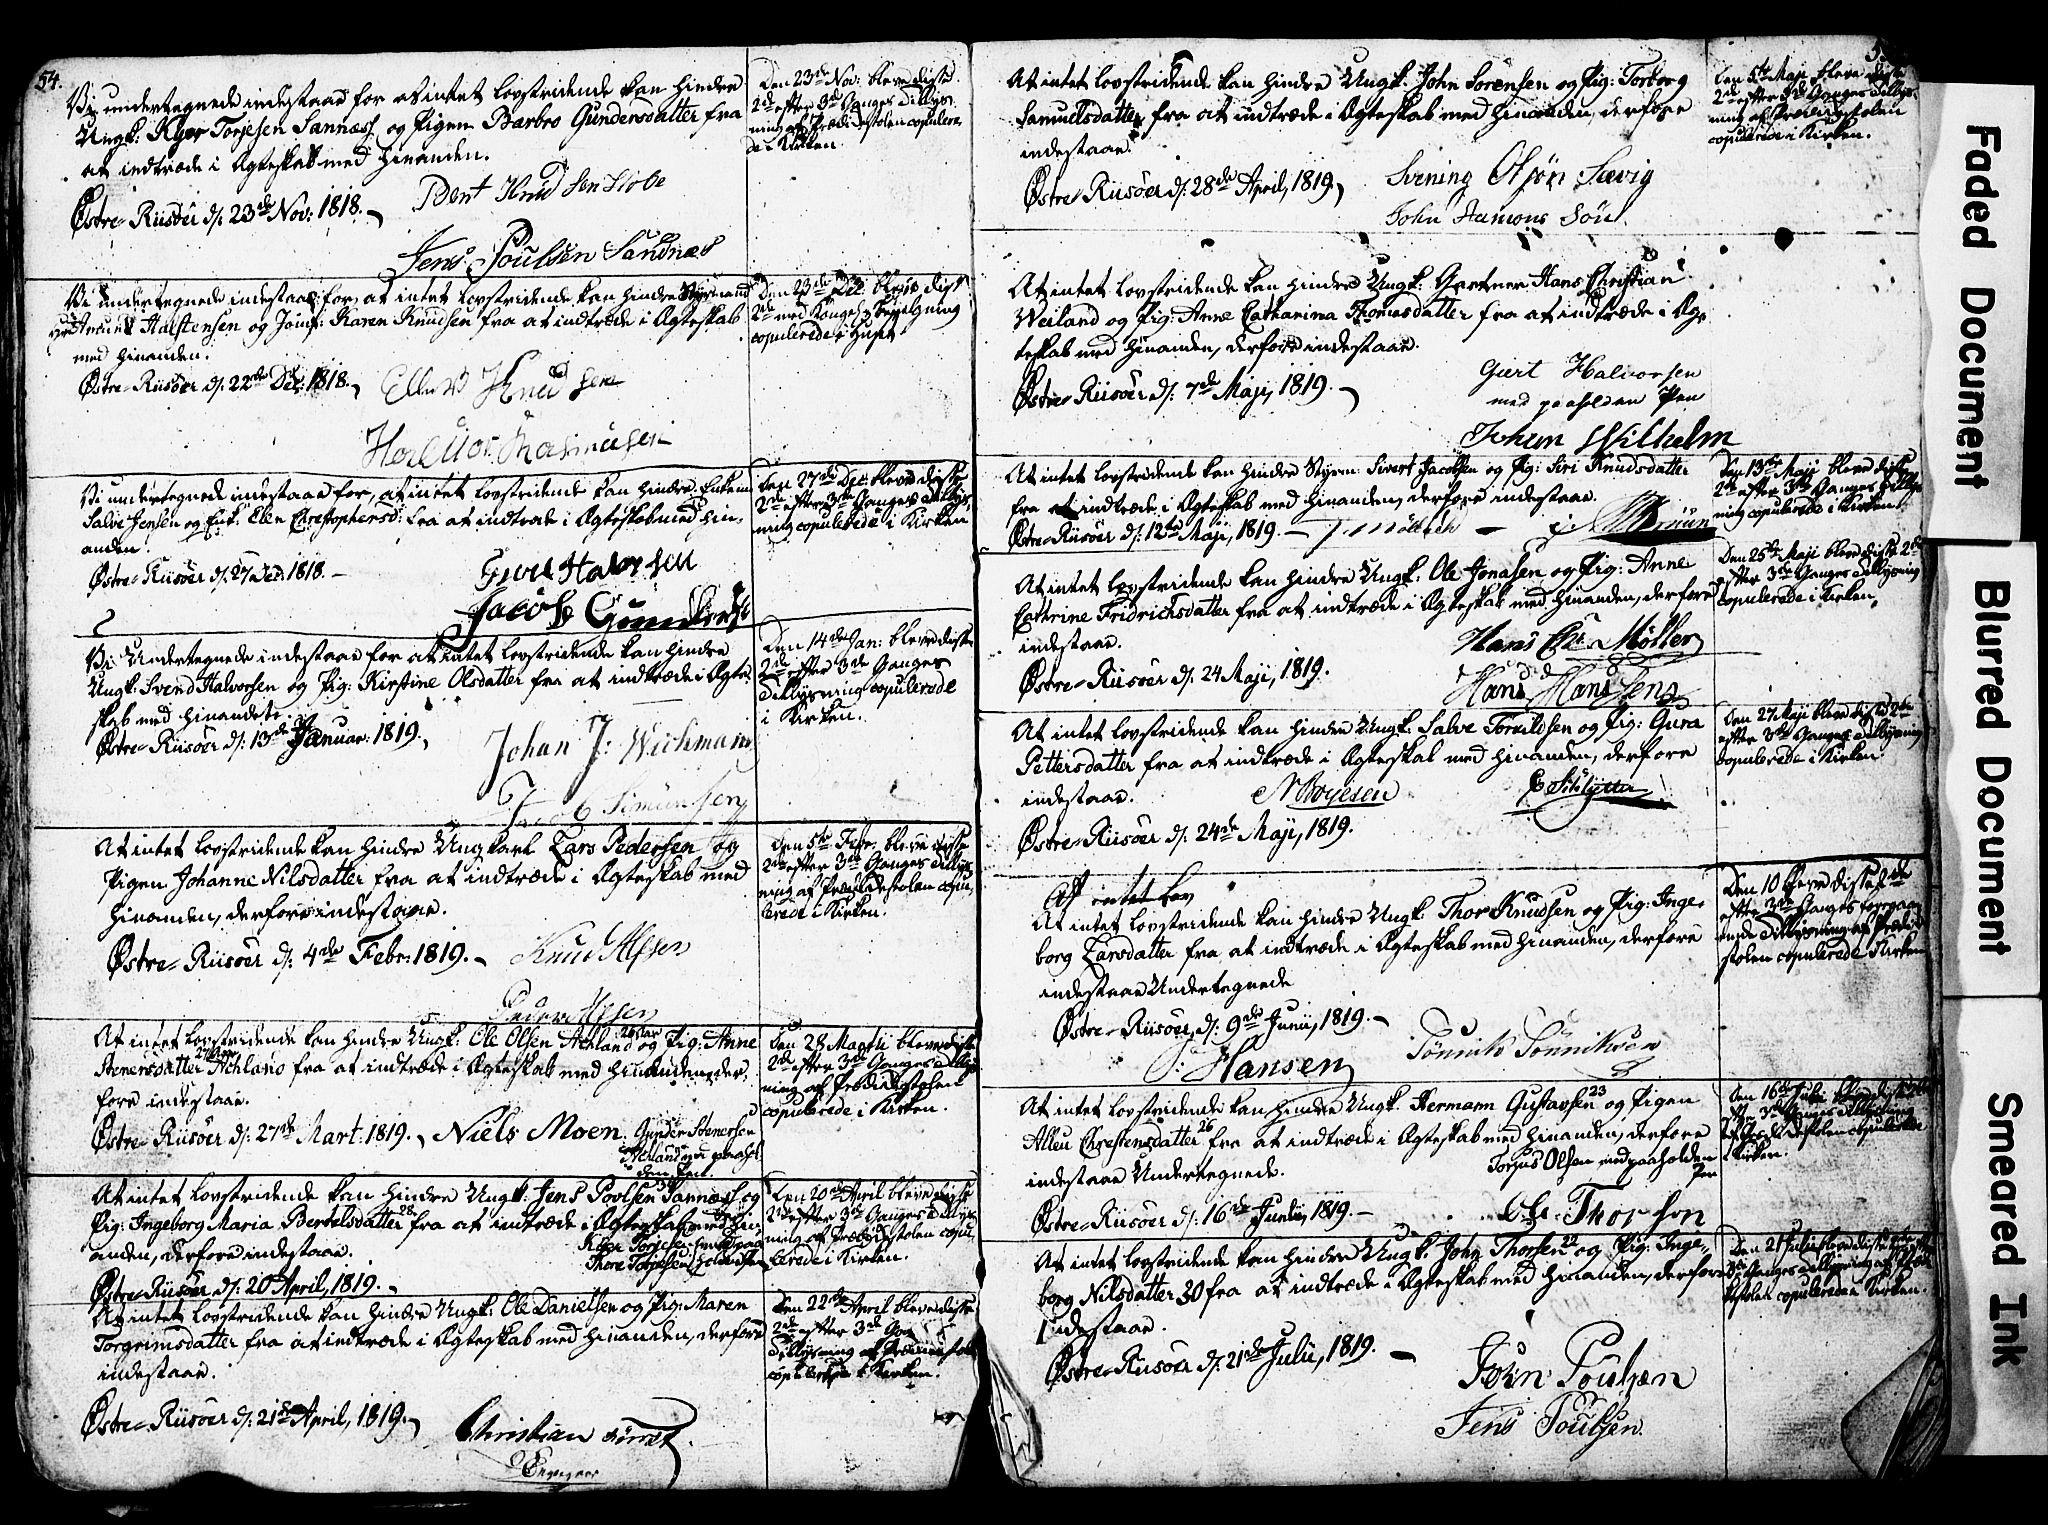 54.
Vi undertegnede indestaae for at intet lovstridende kan hindre
Ungk: Kyer Torjesen Sannæss og Pigen Barbro Gundersdatter fra
at indtræde i Ægteskab med hinanden.
Østre-Riisöer d: 23de Nov: 1818.
Bent Knudsen Stobe
Jens Poulsen Sandnæs
Den 23de Nov: bleve disse
2de efter 3de Ganges Tillys-
ning af Prædikestolen copulere-
de i Kirken.
Vi undertegnede indestaae for, at intet lovstridende kan hindre Styrmand
Amund Halstensen og Jomf: Karen Knudsen fra at indtræde i Ægteskab
med hinanden.
Østre-Riisöer d: 22de Dec: 1818.
Ellev Knudsen
Halvor Rasmusen
Den 23de Dec: bleve disse
2de med Konge Bevilgning
copulerede i Huset
Vi undertegnede indestaae for, at intet lovstridende kan hindre Enkem:
Salve Jensen og Enk: Elen Christophersd: fra at indtræde i Ægteskab med hin-
anden.
Østre-Riisöer d: 27 Dec: 1818.
Giert Halvorsen
Jacob Gundersen
Den 27de Dec: bleve disse
2de efter 3de Ganges Tillys-
ning copulerede i Kirken
Vi Undertegnede indestaae for at intet lovstridende kan hindre
Ungk: Svend Halvorsen og Pig: Kirstine Olsdatter fra at indtræde i Ægte-
skab med hinanden.
Østre-Riisöer d: 13de Januar: 1819.
Johan J: Wichmann
Jacob Simunsen
Den 14de Jan: bleve disse
2de efter 3de Ganges
Tillysning copulerede
i Kirken.
At intet lovstridende kan hindre Ungkarl Lars Pedersen og
Pigen Johanne Nilsdatter fra at indtræde i Ægteskab med
hinanden, derfore indestaae.
Østre-Riisöer d: 4de Febr: 1819.
Knud Alfsen
Peder Alfsen
Den 5te Febr: bleve disse
2de efter 3de Ganges Tillys-
ning af Prædikestolen copu-
lerede i Kirken.
At intet lovstridende kan hindre Ungk: Ole Olsen Aehland og Pig: Anne
Stenersdatter Aehland fra at indtræde i Ægteskab med hinanden, der-
fore indestaae.
Østre-Riisöer d: 27de Mart: 1819.
Niels Moen
Gunder Stenersen
Aehland med paahol-
den Pen.
Den 28 Martii bleve disse
2de efter 3de Ganges Tillys-
ning af Prædikestolen
copulerede i Kirken.
At intet lovstridende kan hindre Ungk: Jens Povlsen Sannæss og
Pig: Ingeborg Maria Bertelsdatter 28 fra at indtræde i Ægteskab med hin-
anden, derfore indestaae.
Kyer Torjesen
Thore Torjesen
Østre-Riisöer d: 20 April, 1819.
Den 20de April bleve disse
2de efter 3de Ganges Tillys-
ning af Prædikestolen copu-
lerede i Kirken.
At intet lovstridende kan hindre Ungk: Ole Danielsen og Pig: Maren
Torgrimsdatter fra at indtræde i Ægteskab med hinanden, derfore
indestaae.
Østre-Riisöer d: 21de April, 1819.
Christian
Den 22de April bleve disse
2de efter 3de
Tillysning af Prædikestolen
copulerede i Kirken.
At intet lovstridende kan hindre Ungk: John Sörensen og Pig: Torborg
Samuelsdatter fra at indtræde i Ægteskab med hinanden, derfore
indestaae.
Østre-Riisöer d: 28de April, 1819.
Svening Sævig
John Aamons Sön
Den 5te Maji bleve disse
2de efter 3de Ganges Tillys-
ning af Prædikestolen
copulerede i Kirken.
At intet lovstridende kan hindre Ungk: Gartner Hans Christian
Weiland og Pig: Anne Catharina Thomasdatter fra at indtræde i Æg-
teskab med hinanden, derfore indestaae.
Østre-Riisöer d: 7de Maji, 1819.
Giert Halvorsen
med paaholden Pen
Johan Wilhelm
At intet lovstridende kan hindre Styrm: Sivert Jacobsen og Pig: Siri Knudsdatter
fra at indtræde i Ægteskab med hinanden, derfore indestaae.
Østre-Riisöer d: 12te Maji, 1819.
Den 13de Maji bleve disse
2de efter 3de Ganges Tillys-
ning copulerede i Kirken.
At intet lovstridende kan hindre Ungk: Ole Jonasen og Pig: Anne
Cathrine Fridrichsdatter fra at indtræde i Ægteskab med hinanden, derfore
indestaae.
Østre-Riisöer d: 24 Maji, 1819.
Hans Chr: Möller
Hans Hansen
Den 25de Maji bleve disse 2de
efter 3de Ganges Tillysning
copulerede i Kirken.
At intet lovstridende kan hindre Ungk: Salve Torvildsen og Pig: Gura
Pettersdatter fra at indtræde i Ægteskab med hinanden, derfore
indestaae.
N Boyesen
E Schlytter
Østre-Riisöer d: 24de Maji, 1819.
Den 27 Maji bleve disse 2de
efter 3de Ganges Tillysning
copulerede i Kirken
At intet lov
At intet lovstridende kan hindre Ungk: Thor Knudsen og Pig: Inge-
borg Larsdatter fra at indtræde i Ægteskab med hinanden, derfore
indestaae Undertegnede
Østre-Riisöer, d: 9de Junii, 1819.
Hansen
Tönnik Tönniksen
Den 10 bleve disse 2de
efter 3de Ganges foregaa-
ende Tillysning af Prædike-
stolen copulerede i Kirken
At intet lovstridende kan hindre Ungk: Hermann Gustavsen 23 og Pigen
Alleu Chrestensdatter 26 fra at indtræde i Ægteskab med hinanden, derfore
indestaae Undertegnede.
Torjus Olsen med paaholden
Pen
Østre-Riisöer d: 16de Junii, 1819.
Ole Thorson
Den 16de
efter 3de Ganges Tillysning
af Prædikestolen copulerede
i Kirken.
At intet lovstridende kan hindre Ungk: John Thorsen 22 og Pig: Inge-
borg Nilsdatter 30 fra at indtræde i Ægteskab med hinanden, derfore
indestaae.
Østre-Riisöer d: 21de Julii, 1819.
John Poulsen
Jens Poulsen
Den 21 Julii bleve disse 2de efter
3de Ganges Tillysning af Prædi-
kestolen copulerede i Kirken.
Faded Document
Blurred Document
Smeared Ink